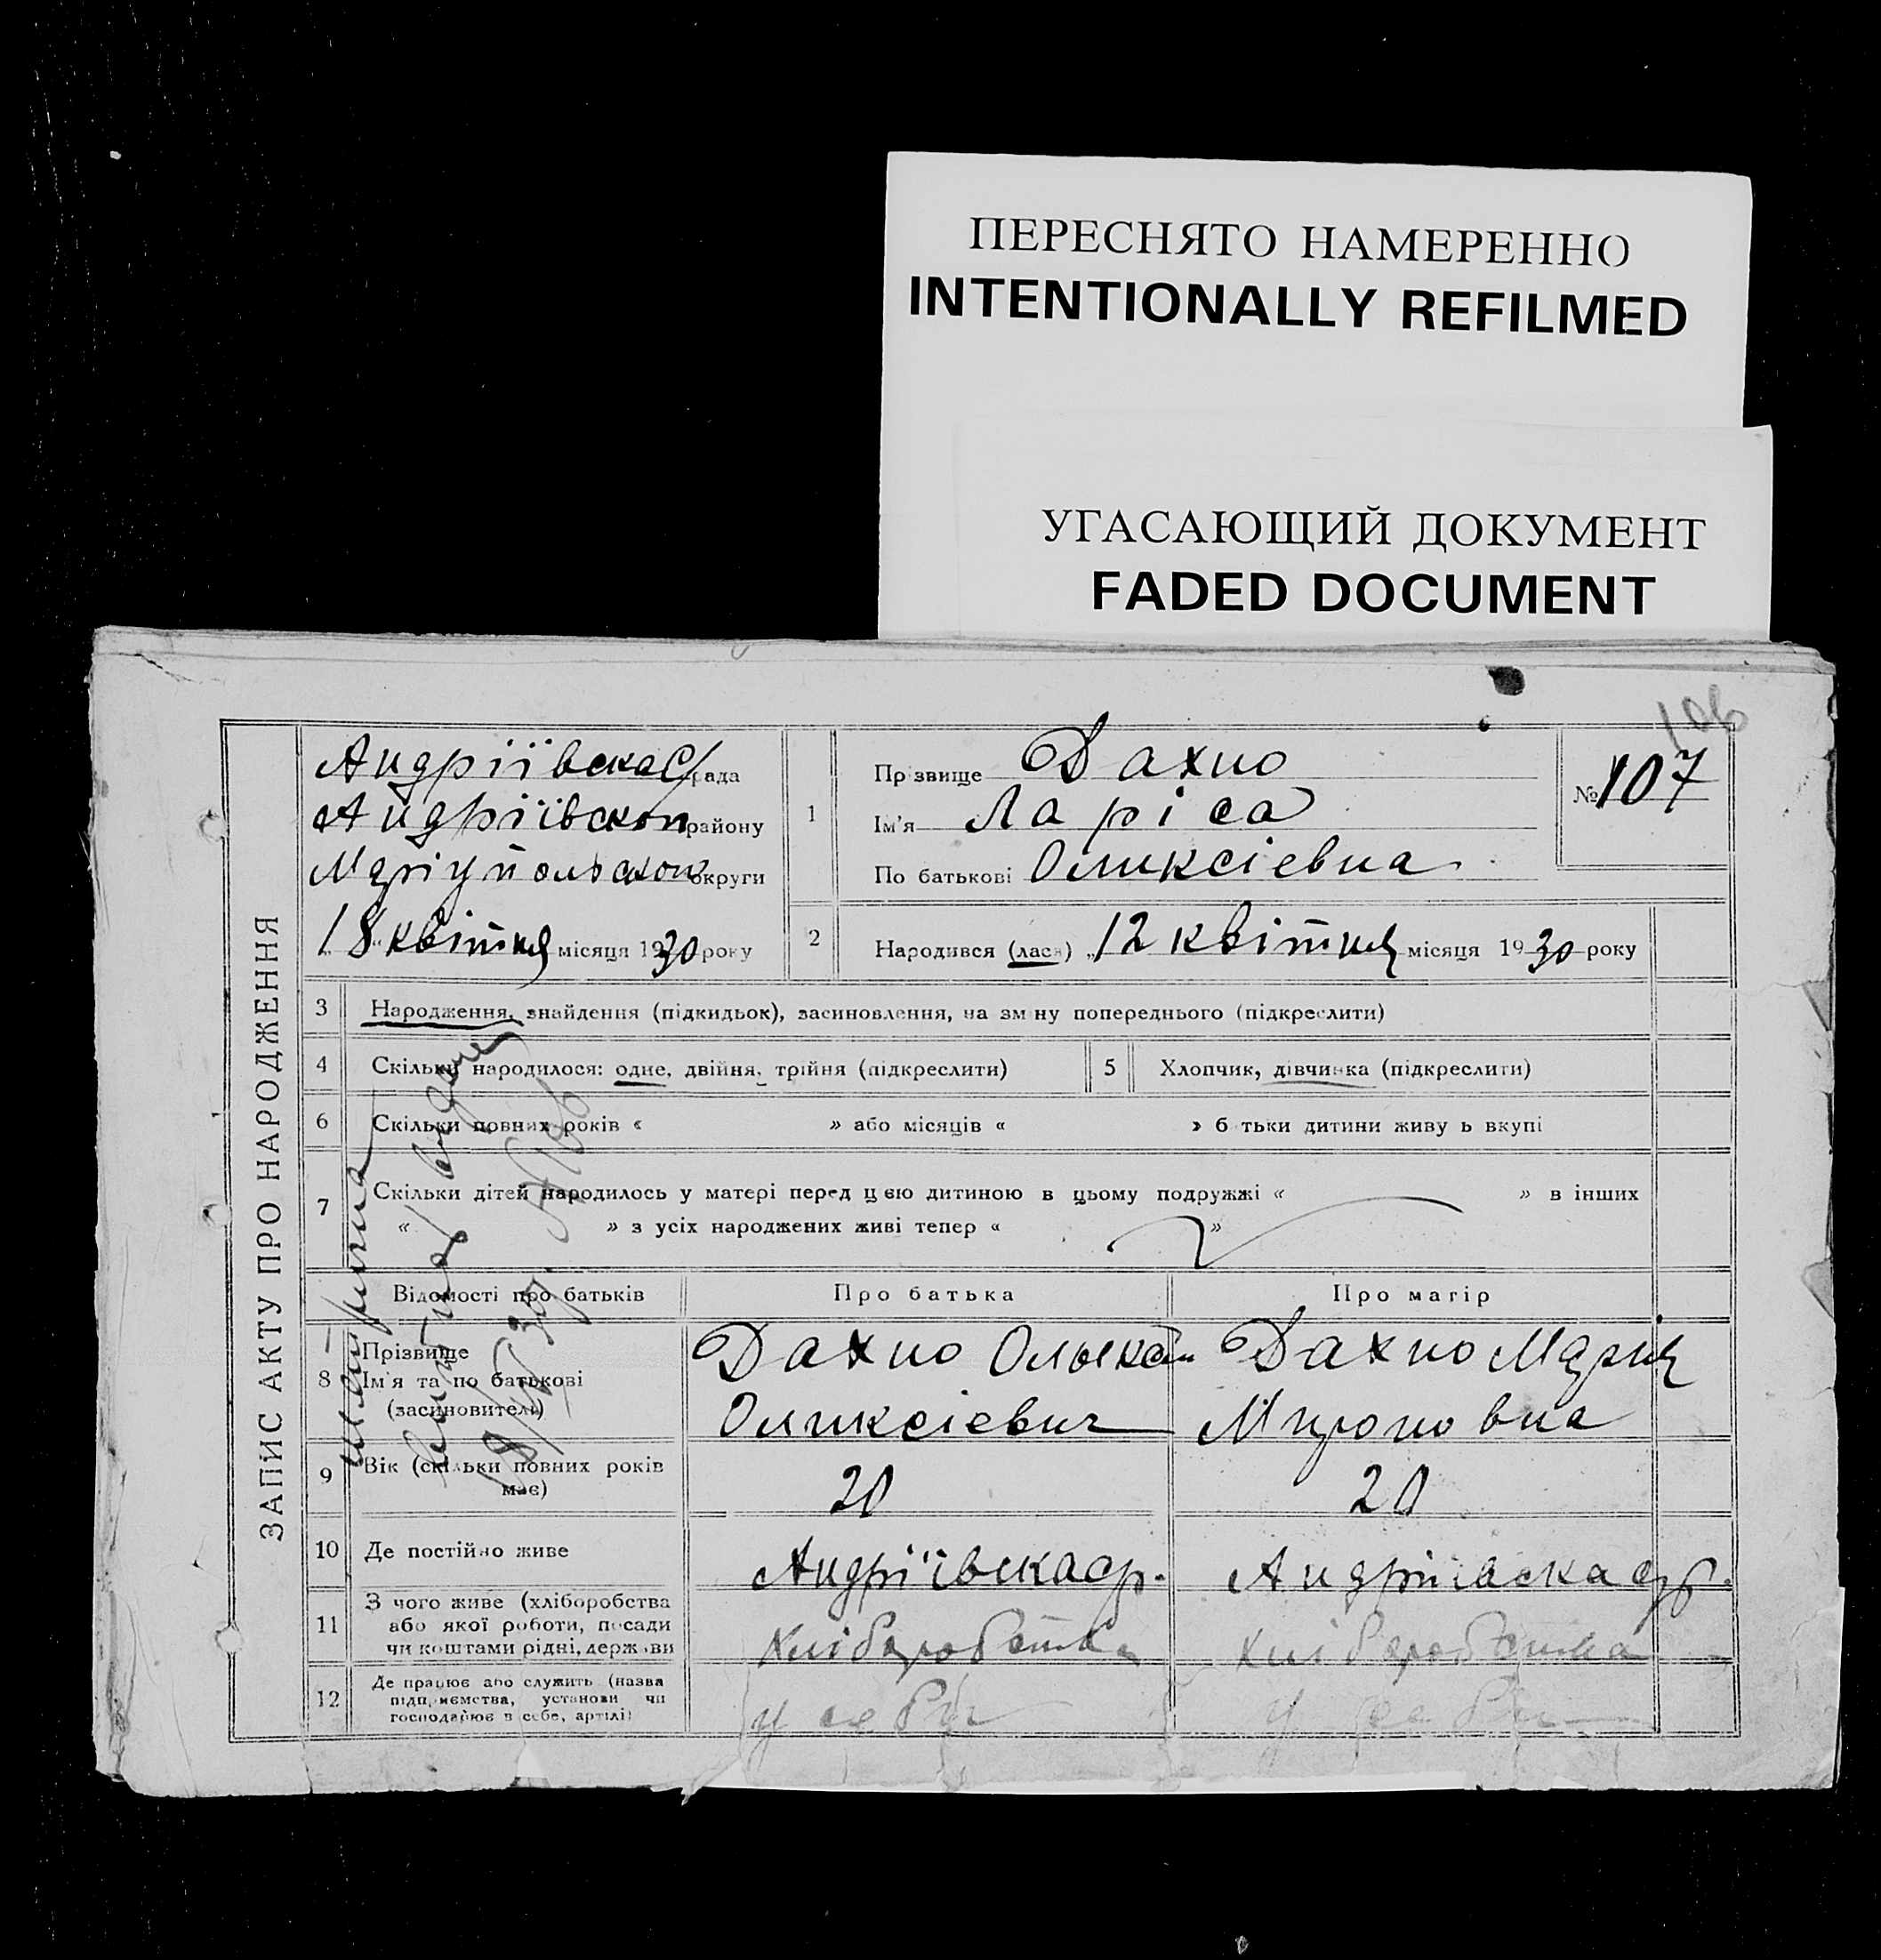 ПЕРЕСНЯТО НАМЕРЕННО
INTENTIONALLY REFILMED
УГАСАЮЩИЙ ДОКУМЕНТ
FADED DOCUMENT
106
ЗАПИС АКТУ ПРО НАРОДЖЕННЯ
Андріївска С/рада
Андріївскоі району
Маріупольскоі округи
"18" квітня місяця 1930 року
1
Прізвище Дахно
Ім'я Ларіса
По батькові Оликсієвна
№ 107
2
Народився (лася) "12 квітня місяця 1930 року
3 Народження, знайдення (підкидьок), засиновлення, на зміну попереднього (підкреслити)
4 Скільки народилося: одне, двійня, трійня (підкреслити)
5 Хлопчик, дівчинка (підкреслити)
6 Скільки повних років « » або місяців « » батьки дитини живуть вкупі
7 Скільки дітей народилось у матері перед цією дитиною в цьому подружжі « » в інших
« » з усіх народжених живі тепер « »
Відомості про батьків Про батька Про матір
8 Прізвище
Ім'я та по батькові
(засновителі)
Дахно
Оликсієвич
Дахно Мария
Мироновна
9 Вік (скільки повних років
має)
20 20
10 Де постійно живе Андріївска ср. Андріївска ср.
11 З чого живе (хліборобства
або якої роботи, посади
чи коштами рідні, держави
Хлібаробства Хлібаробства
12 Де працює або служить (назва
підприємства, установи чи
господарює в себе, артілі)
у себи у себи